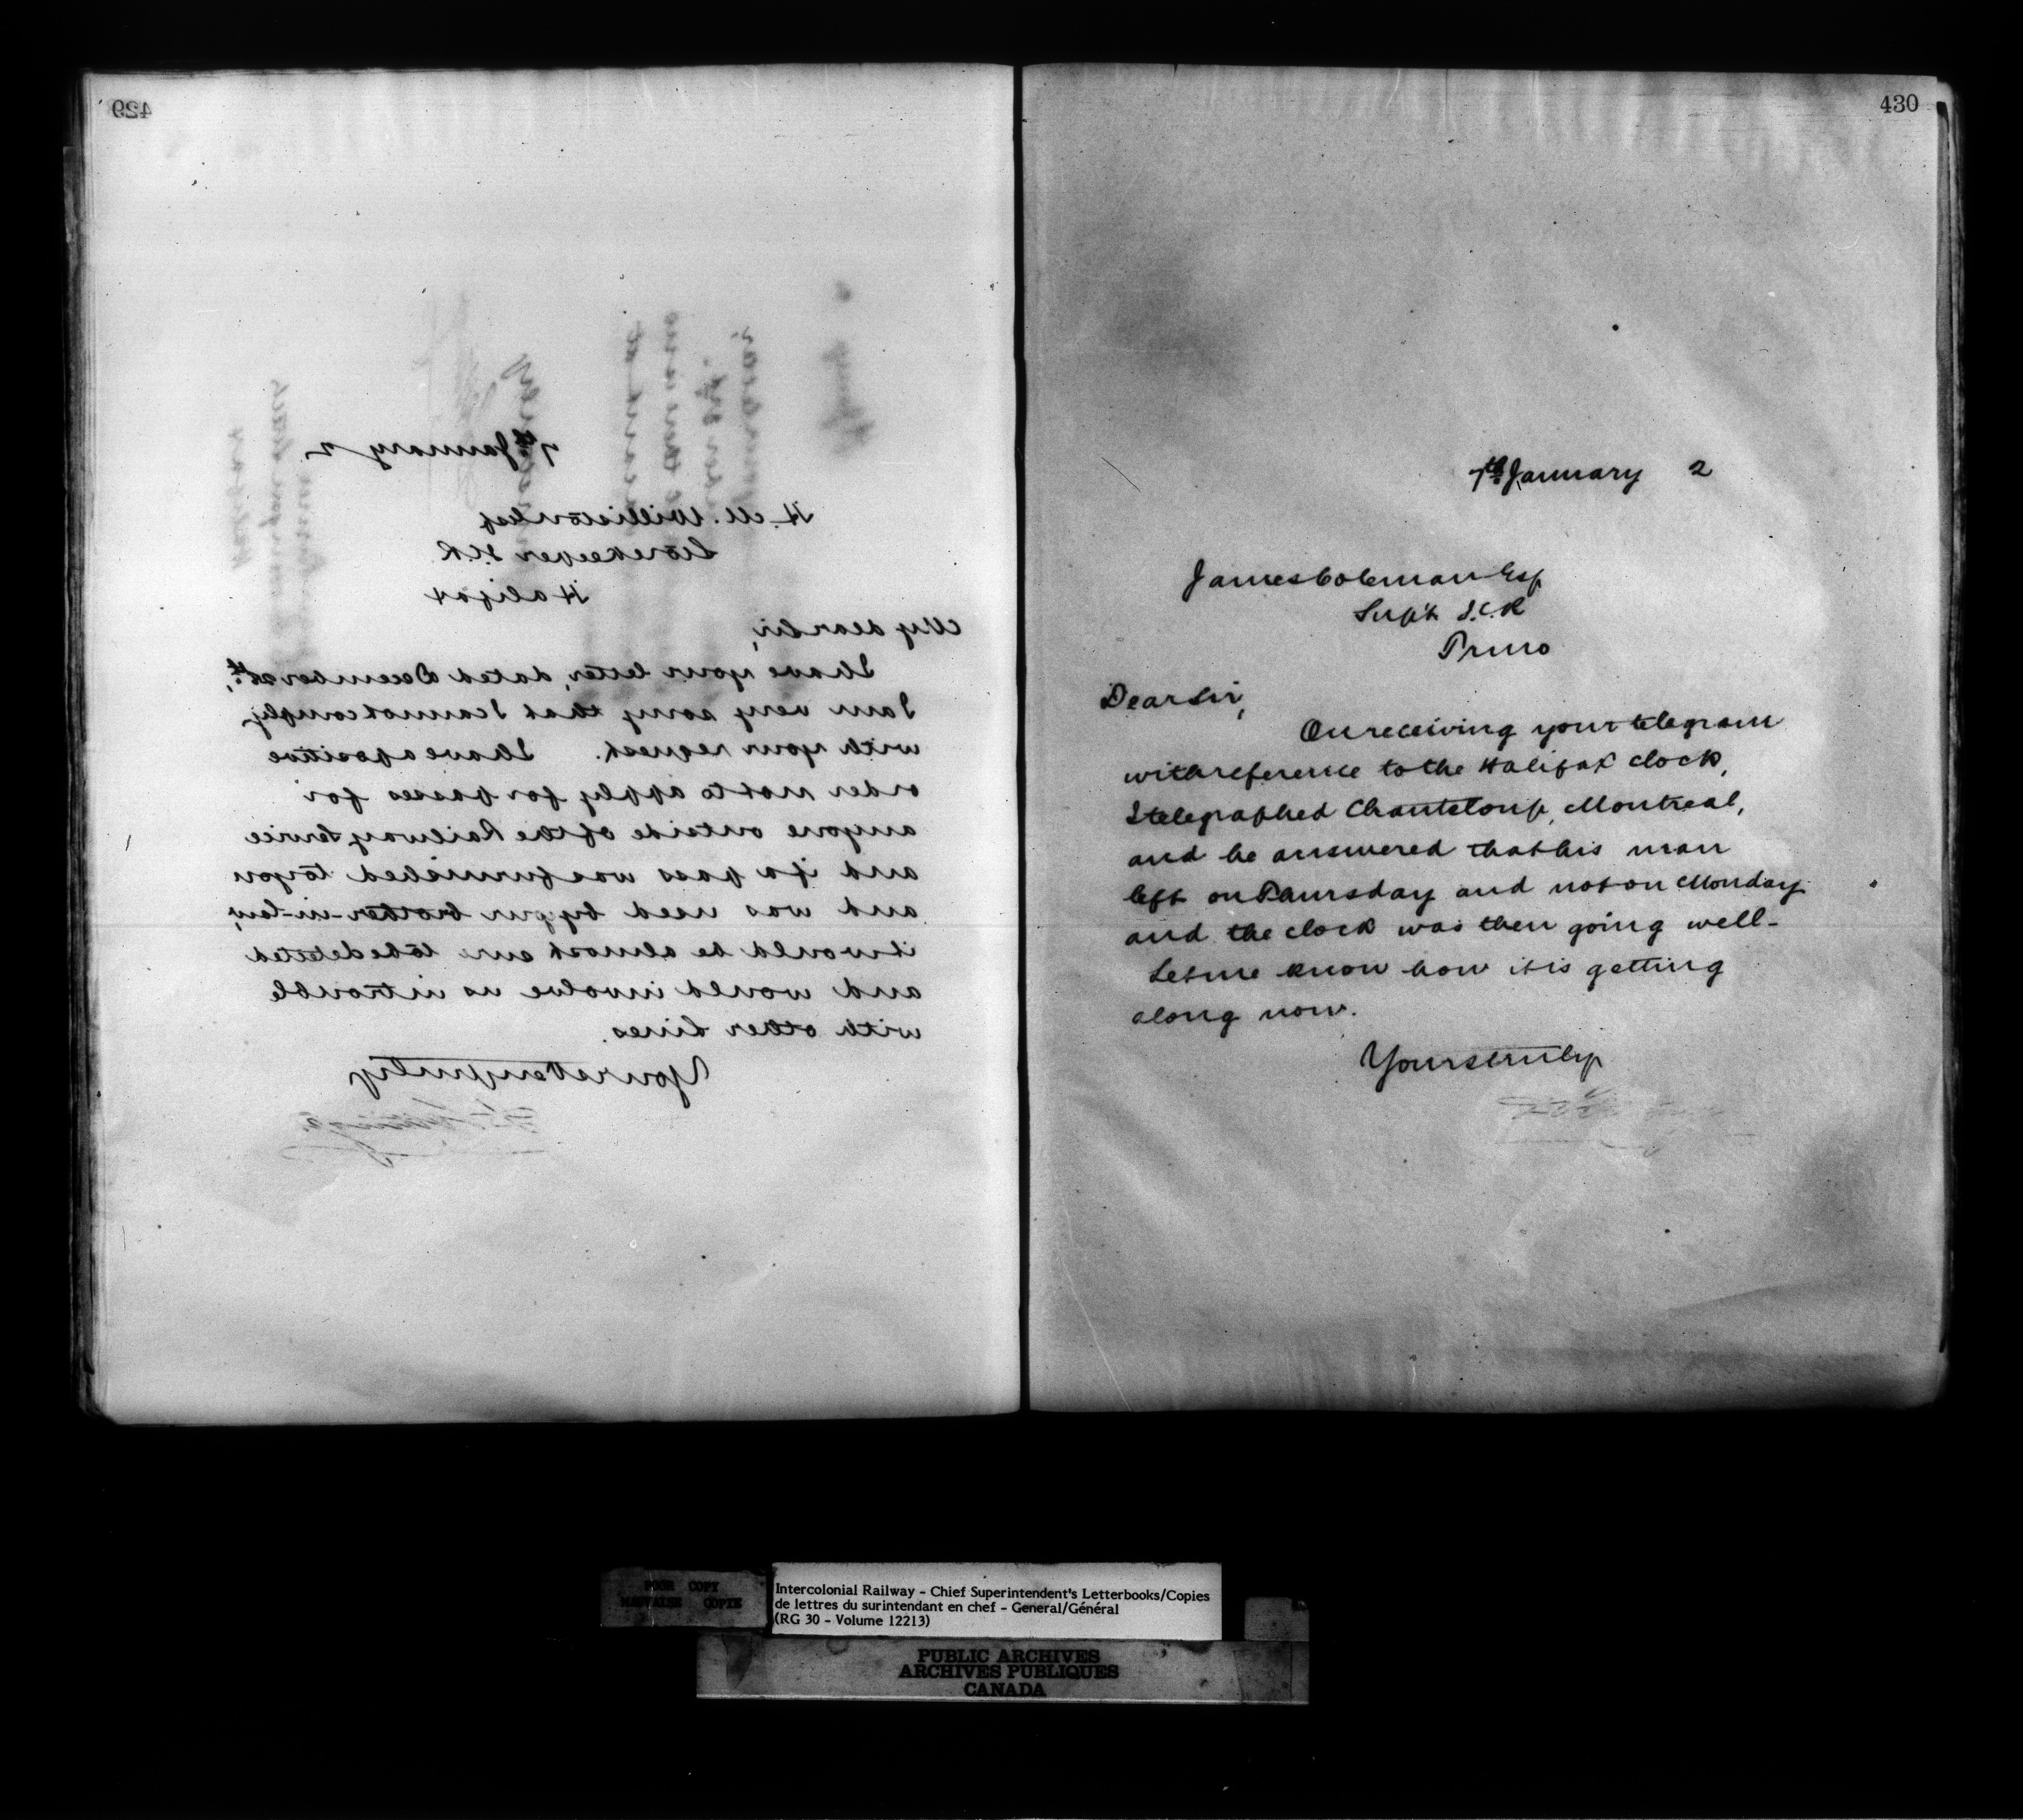 429
7th January 2
H. M. Williston Esq
Storekeeper I.C.R
Halifax
My dear Sir,
I have your letter, dated December 28th,
I am very sorry that I cannot comply
with your request. I have a positive
order not to apply for passes for
anyone outside of the Railway Service
and if a pass was furnished to you
and was used by your brother-in-law,
it would be almost sure to be detected
and would involve us in trouble
with other Lines.
Yours very truly
430
7th January 2
James Coleman Esq
Supt I.C.R
Truro
Dear Sir,
On receiving your telegram
with reference to the Halifax clock,
I telegraphed Chanteloup, Montreal,
and he answered that his man
left on Thursday and not on Monday
and the clock was then going well-
Let me know how it is getting
along now.
Yours truly
POOR COPY
MAUVAISE COPIE
Intercolonial Railway - Chief Superintendent's Letterbooks/Copies
de lettres du surintendant en chef - General/Général
(RG 30 - Volume 12213)
PUBLIC ARCHIVES
ARCHIVES PUBLIQUES
CANADA